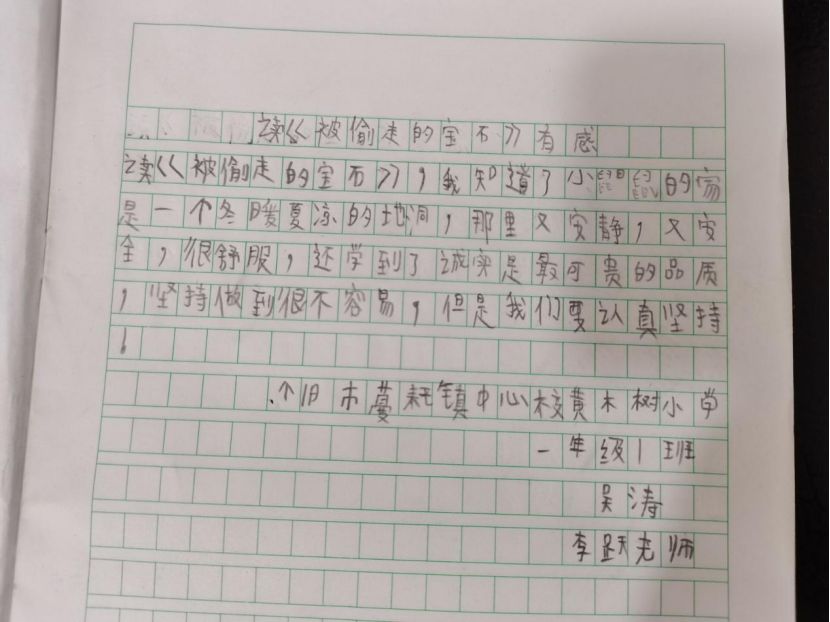 读《被偷走的宝石》有感
读《被偷走的宝石》,我知道了小鼹鼠的家
是一个冬暖夏凉的地洞,那里又安静,又安
全,很舒服,还学到了诚实是最可贵的品质
,坚持做到很不容易,但是我们要认真坚持
!
个旧市蔓耗镇中心校黄木树小学
一年级1班
吴涛
李跃老师